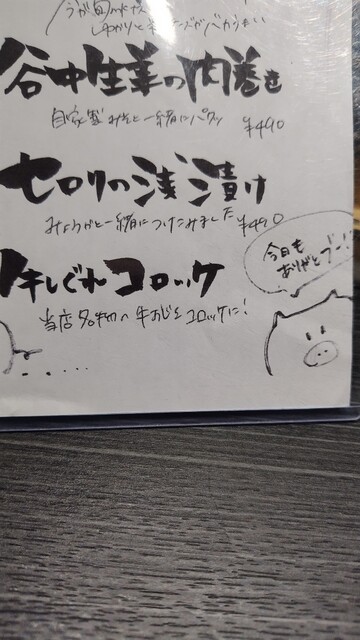 谷中生姜の肉巻き
自家製みそと一緒にパクッ ¥490
セロリの浅漬け
みょうがと一緒につけてみました ¥490
牛しぐれコロッケ
当店名物の牛すじをコロッケに!
今日も
ありがとブー!